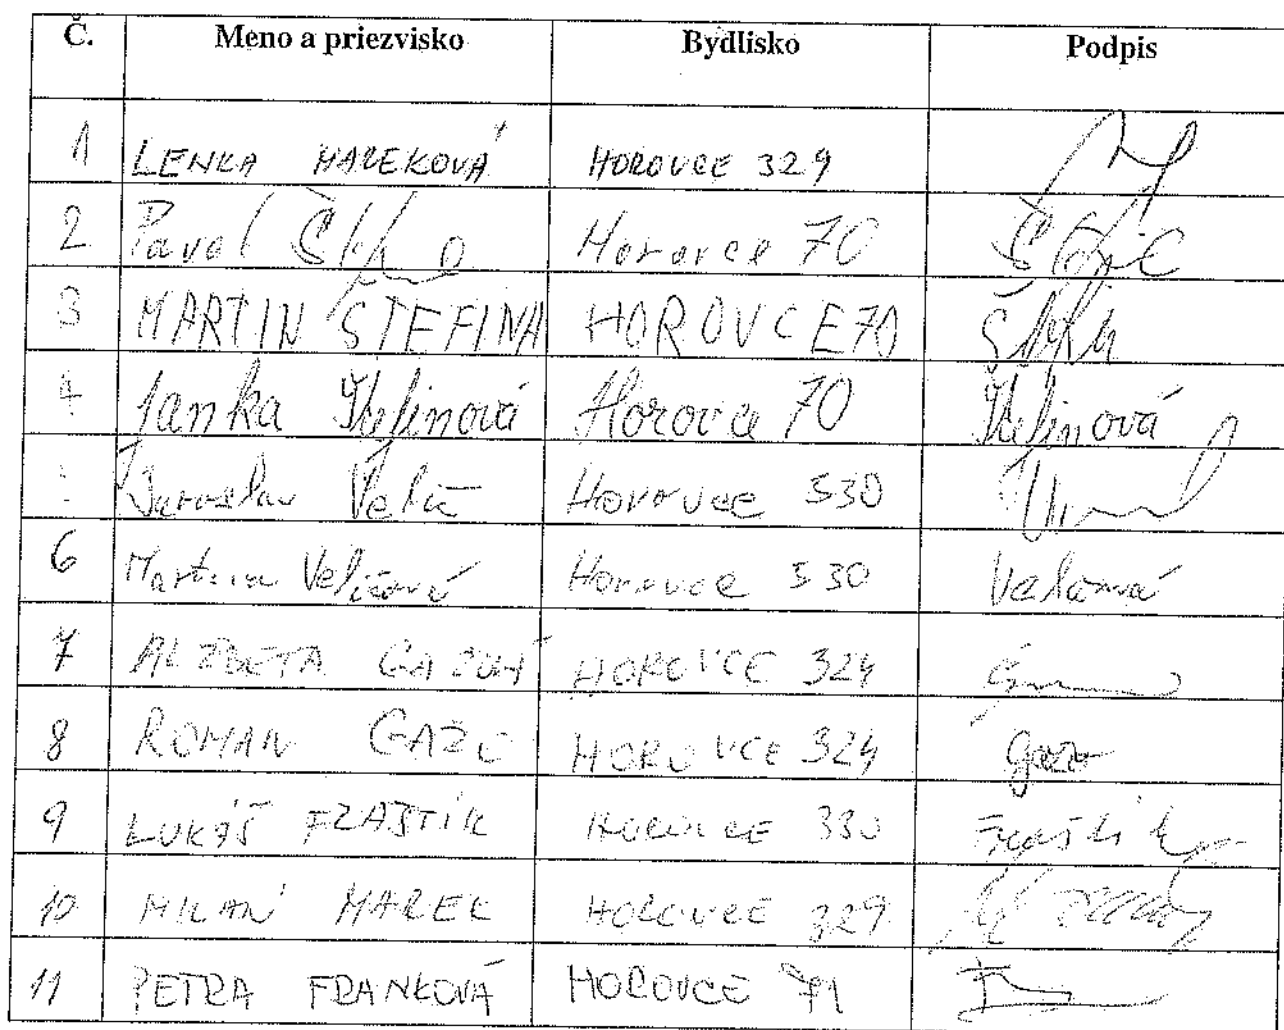 Č. Meno a priezvisko Bydlisko Podpis
1 LENKA MAREKOVÁ HOROVCE 329
2 Pavol Horovce 70
3 MARTIN ŠTEFINA HOROVCE 70
4 Janka Štefinová Horovce 70 Štefinová
Jaroslav Velič Horovce 530
6 Martina Veličová Horovce 530 Veličová
7 ALŽBETA GAŽOVÁ HOROVCE 324
8 ROMAN GAŽO HOROVCE 324 Gažo
9 LUKÁŠ FRAŠTÍK HOROVCE 330 Fraštík
10 MILAN MAREK HOROVCE 329
11 PETRA FRANKOVÁ HOROVCE 71